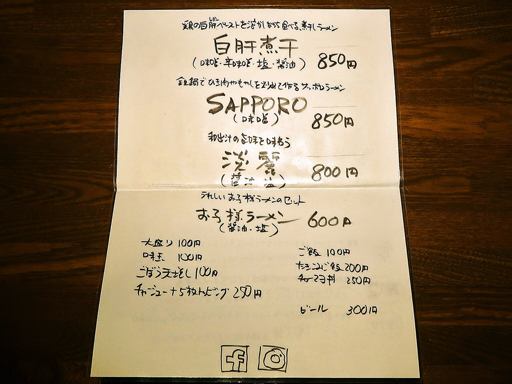 鶏の白肝ペーストを溶かしながら食べる、煮干しラーメン
白肝煮干
(味噌・辛味噌・塩・醤油) 850円
中華鍋でひき肉やもやしを炒めて作るサッポロラーメン
SAPPORO
(味噌) 850円
和出汁の旨味を味わう
淡麗
(醤油・塩) 800円
うれしいお子様ラーメンのセット
お子様ラーメン 600円
(醤油・塩)
大盛り 100円
味玉 100円
ごぼう天そし 100円
チャーシュー5枚トッピング 250円
ご飯 100円
たきこみご飯 200円
チャーマヨ丼 250円
ビール 300円